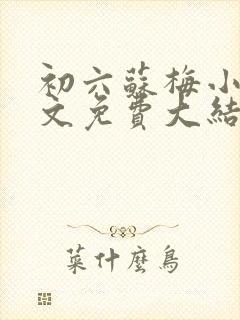 初六蘇梅小
文免費大結
菜什麼鳥